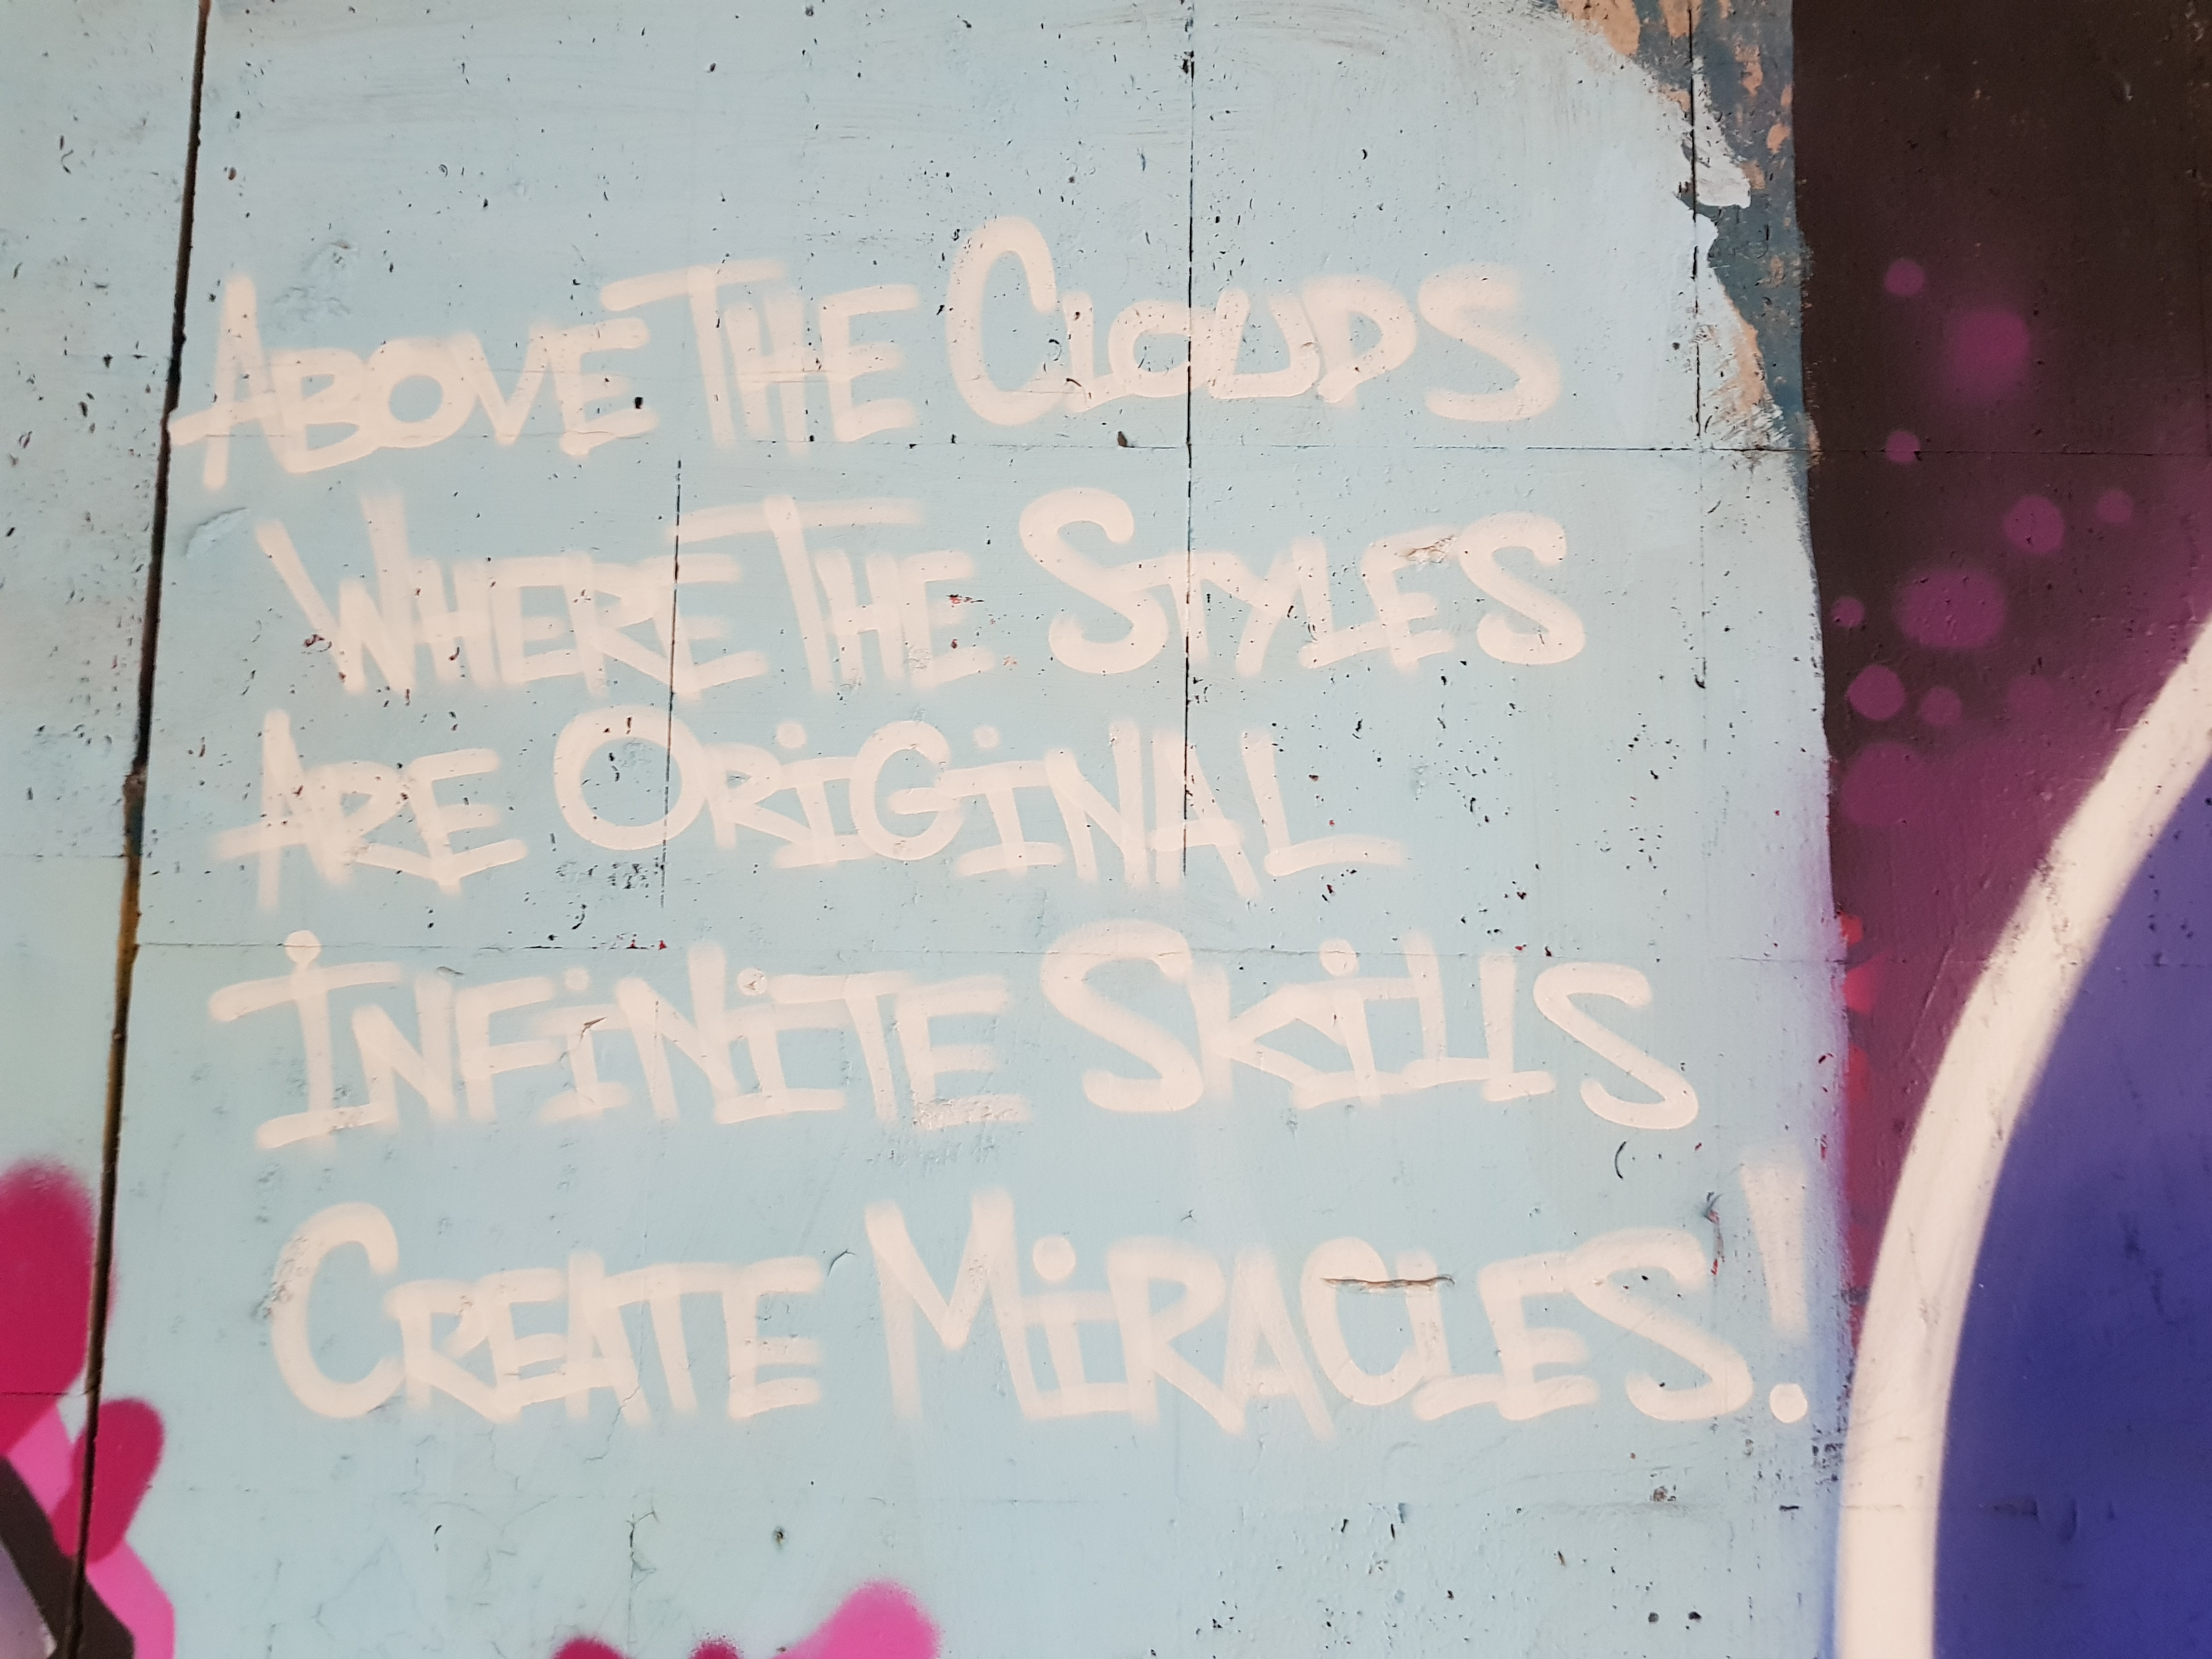 ABOVE THE CLOUDS
WHERE THE STYLES
ARE ORiGiNAL
iNFiNiTE SKiLLS
CREATE MiRACLES!